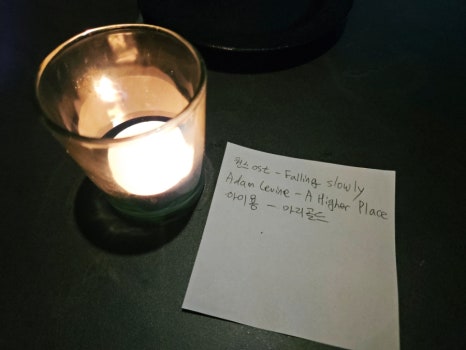 원스 ost - Falling slowly
Adam Levine - A Higher Place
아이묭 - 마리골드